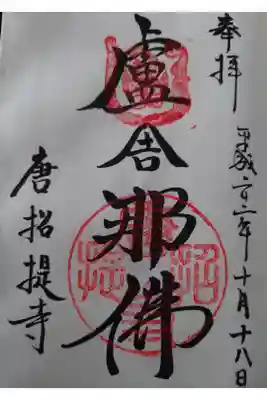 奉拝
平成二十二年十月十八日
盧舎那佛
唐招提寺